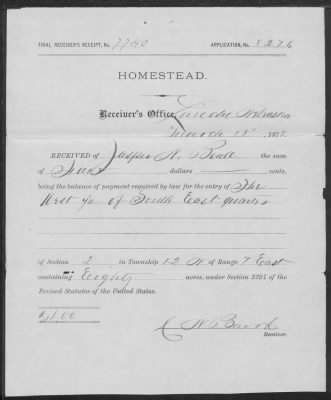 FINAL RECEIVER'S RECEIPT, No. 7740 APPLICATION, No. 8276
HOMESTEAD.
Receiver's Office, Lincoln Nebraska
March 18" 1878.
RECEIVED of Jasper N. the sum
of Four dollars cents,
being the balance of payment required by law for the entry of The
West ½ of South East quarter
of Section 2 in Township 12 N of Range 7 East
containing Eighty acres, under Section 2291 of the
Revised Statutes of the United States.
$ .00
Receiver.